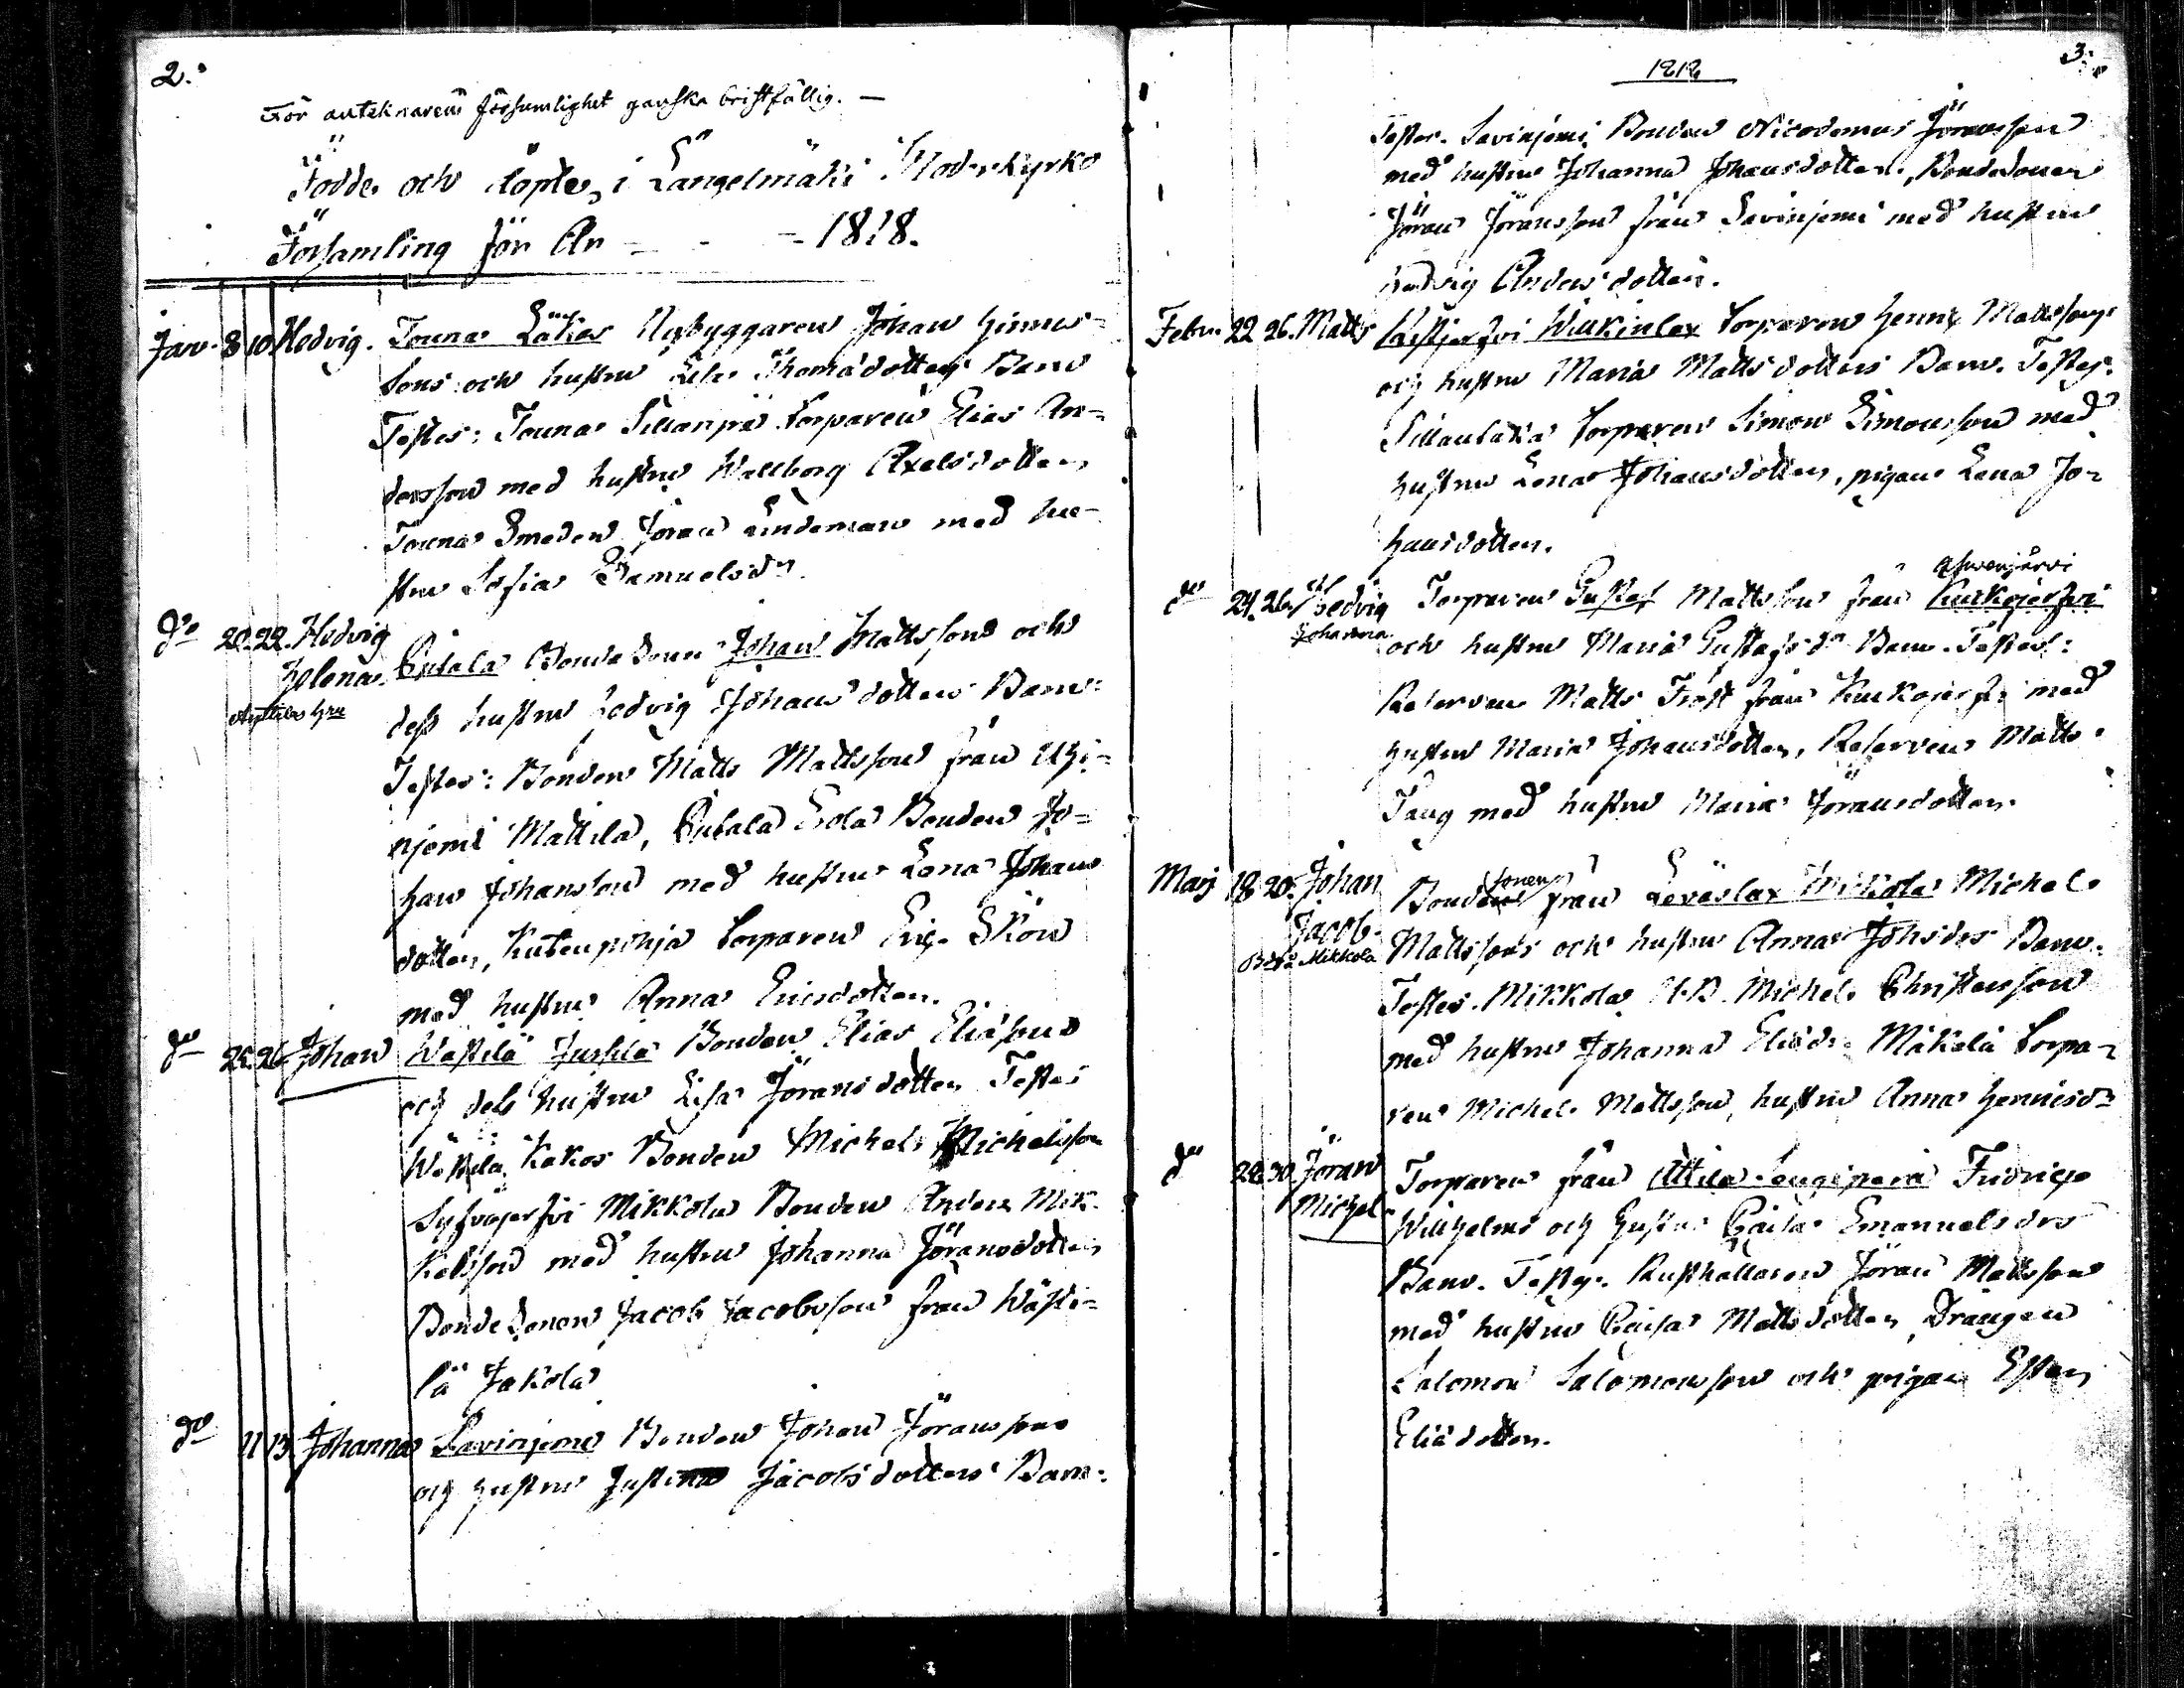 2.
För anteknarens försumlighet ganska bristfällig. —
Födde och döpte, i Längelmäki Moderkyrko
Församling för År - - - 1818.
Janu. 8 10 Hedvig. Touna Nybyggaren Johan Henrics-
Sons och hustru Thomädotters Barn
Testes: Touna Sillanpä Torparen Elias An-
dersson med hustru Wallborg Axelsdotter,
Touna Smeden Jöran Linderman med hu-
stru Sofia Samuelsdr
do 20. 22. Hedvig
Helena. Bondesonen Johan Mattssons och
dess hustru Hedvig Johansdotters Barn:
Testes: Bonden Matts Mattsson från
niemi Mattila, Eola Bonden Jo-
han Johansson med hustru Lena Johans
dotter, Torparen Eric Skön
med hustru Anna Ericsdotter.
do 25. 26 Johan Wästilä Jussila Bonden Elias Eliäsons
och dess hustru Lisa Jöransdotter Testes
Wästilä Kakos Bonden Michel Michelsson
Mikkola Bonden Anders Mic-
kelsson med hustru Johanna Jöransdotter
Bondesonen Jacob Jacobsson från Wästi-
lä Jakola
do 11 13. Johanna Savinjemi Bonden Johan Jöransson
och hustru Jacobsdotters Barn:
3.
1818
Testes. Savinjemi Bonden Nicodemus Jöransson
med hustru Johanna Johansdotter, Bondesonen
Jöran Jöransson från Savinjemi med hustru
Hedvig Andersdotter.
Febru. 22 26. Matts Torparen Henric Mattssons
och hustru Maria Mattsdotters Barn. Testes.
Torparen Simon Simonsson med
hustru Lena Johansdotter, pigan Lena Jo-
hansdotter.
do 24. 26. Hedvig Torparen Gustaf Mattsson från Ahvenjärvi
Johanna. och hustru Maria Gustafsdr Barn. Testes:
Reserven Matts Frost från Kurkojerfvi med
hustru Maria Johansdotter, Reserven Matts
Tang med hustru Maria Jöransdotter.
Marj 18 20. Johan Bondesonens från Leväslax Mikkola Michel
Jacob. Mattssons och hustru Anna Johsdrs Barn.
Mikkola
Testes. Mikkola Michel Christersson
med hustru Johanna Eliädr Mäkelä Torpa-
ren Michel Mattsson, hustru Anna Henricsdr
do 28 30. Jöran Torparen från Attila Fridrics
Michel Willhelms och hustru Caisa Emanuelsdrs
Barn. Testes. Rusthållaren Jöran Mattsson
med hustru Caisa Mattsdotter, Drängen
Salomon Salomonsson och pigan Ester
Eliädotter.